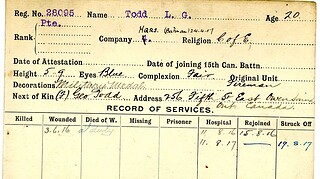 Reg. No. 28095 Name Todd L. G. Age 20
Rank Pte. Company Religion C of E.
Date of Attestation Date of joining 15th Can. Battn.
Height 5.9 Eyes Blue Complexion Fair Original Unit
Decorations Military Medal Fireman
Next of Kin (F) Geo Todd Address 256 Fifth St East Owen Sound
Ont. Canada
RECORD OF SERVICES.
Killed Wounded Died of W. Missing Prisoner Hospital Rejoined Struck Off
3.6.16 11.8.16 15.8.16
11.8.17 19.8.17